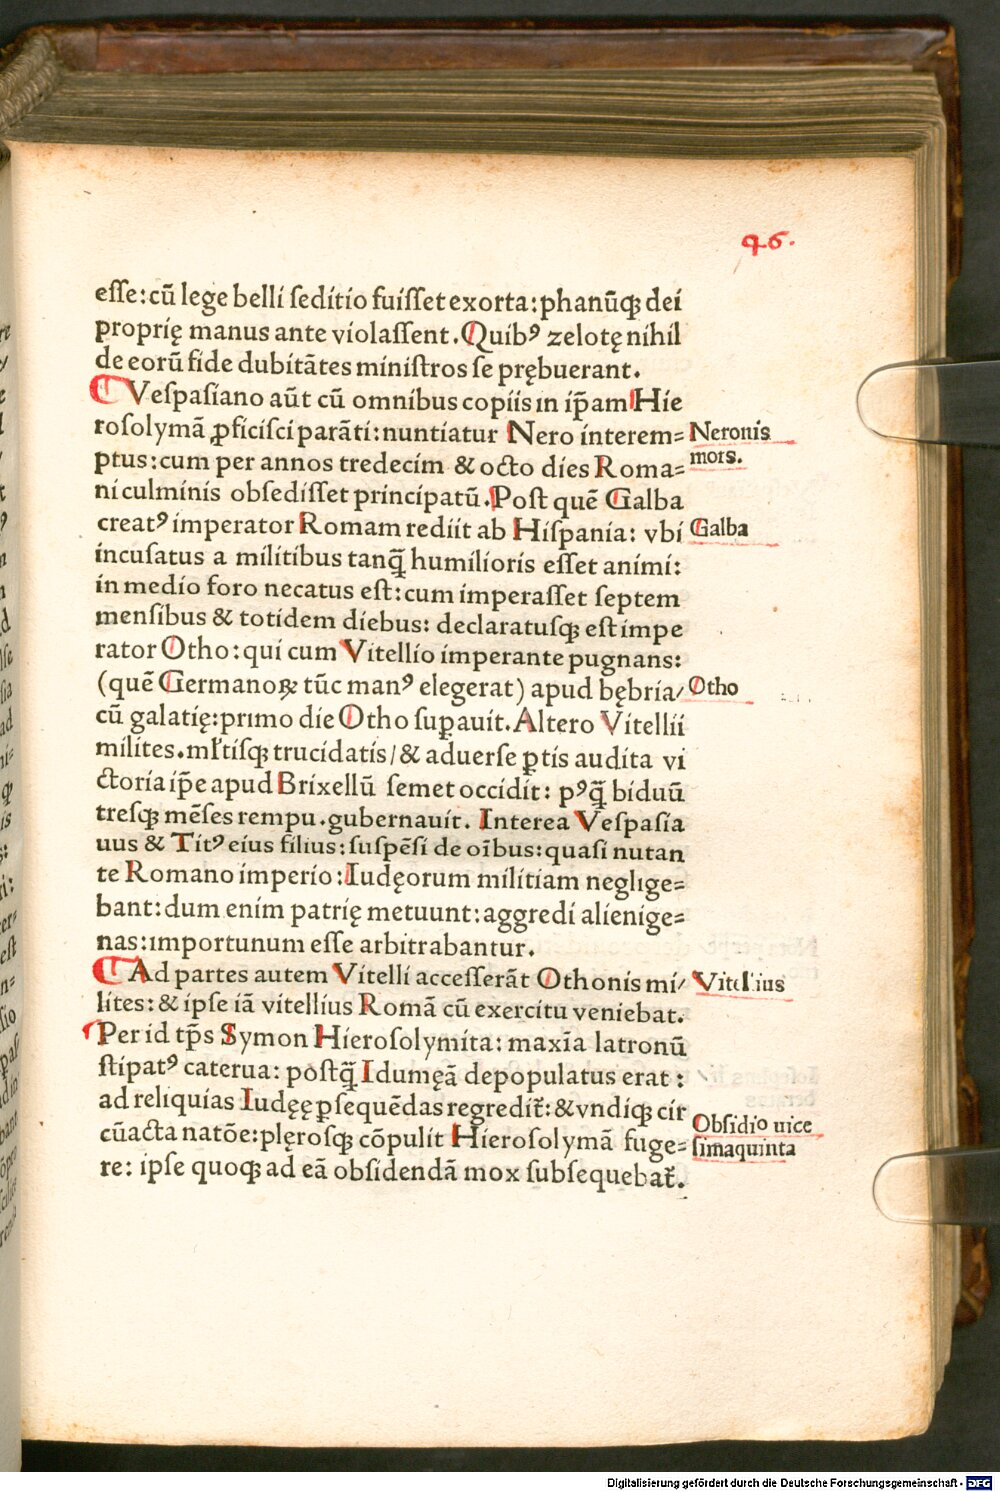 46.
eſſe: cũ lege belli ſeditio fuiſſet exorta: phanũqꝫ dei
proprię manus ante violaſſent. Quibꝰ zelotę nihil
de eorũ fide dubitãtes miniſtros ſe prębuerant.
Veſpaſiano aũt cũ omnibus copiis in ip̃am Hie
roſolymã ꝓficiſci parãti: nuntiatur Nero interem=
Neronis
mors.
ptus: cum per annos tredecim & octo dies Roma=
ni culminis obſediſſet principatũ. Poſt quẽ Galba
creatꝰ imperator Romam rediit ab Hiſpania: vbi
Galba
incuſatus a militibus tanq̃ humilioris eſſet animi:
in medio foro necatus eſt: cum imperaſſet ſeptem
menſibus & totidem diebus: declaratuſqꝫ eſt impe
rator Otho: qui cum Vitellio imperante pugnans:
(quẽ Germanoꝝ tũc manꝰ elegerat) apud bębria/
Otho
cũ galatię: primo die Otho ſuꝑauit. Altero Vitellii
milites. ml̃tiſqꝫ trucidatis / & aduerſe ꝑtis audita vi
ctoria ip̃e apud Brixellũ ſemet occidit: pꝰq̃ biduũ
treſqꝫ mẽſes rempu. gubernauit. Interea Veſpaſia
uus & Titꝰ eius filius: ſuſpẽſi de oĩbus: quaſi nutan
te Romano imperio: Iudęorum militiam neglige=
bant: dum enim patrię metuunt: aggredi alienige=
nas: importunum eſſe arbitrabantur.
Ad partes autem Vitelli acceſſerãt Othonis mi/
Vitellius
lites: & ipſe iã vitellius Romã cũ exercitu veniebat.
Per id tp̃s Symon Hieroſolymita: maxĩa latronũ
ſtipatꝰ caterua: poſtq̃ Idumęã depopulatus erat:
ad reliquias Iudęę ꝑſequẽdas regredit̃: & vndiqꝫ cir
cũacta natõe: plęroſqꝫ cõpulit Hieroſolymã fuge=
Obſidio uice
ſimaquinta
re: ipſe quoqꝫ ad eã obſidendã mox ſubſequebat̃.
Digitalisierung gefördert durch die Deutsche Forschungsgemeinschaft - DFG